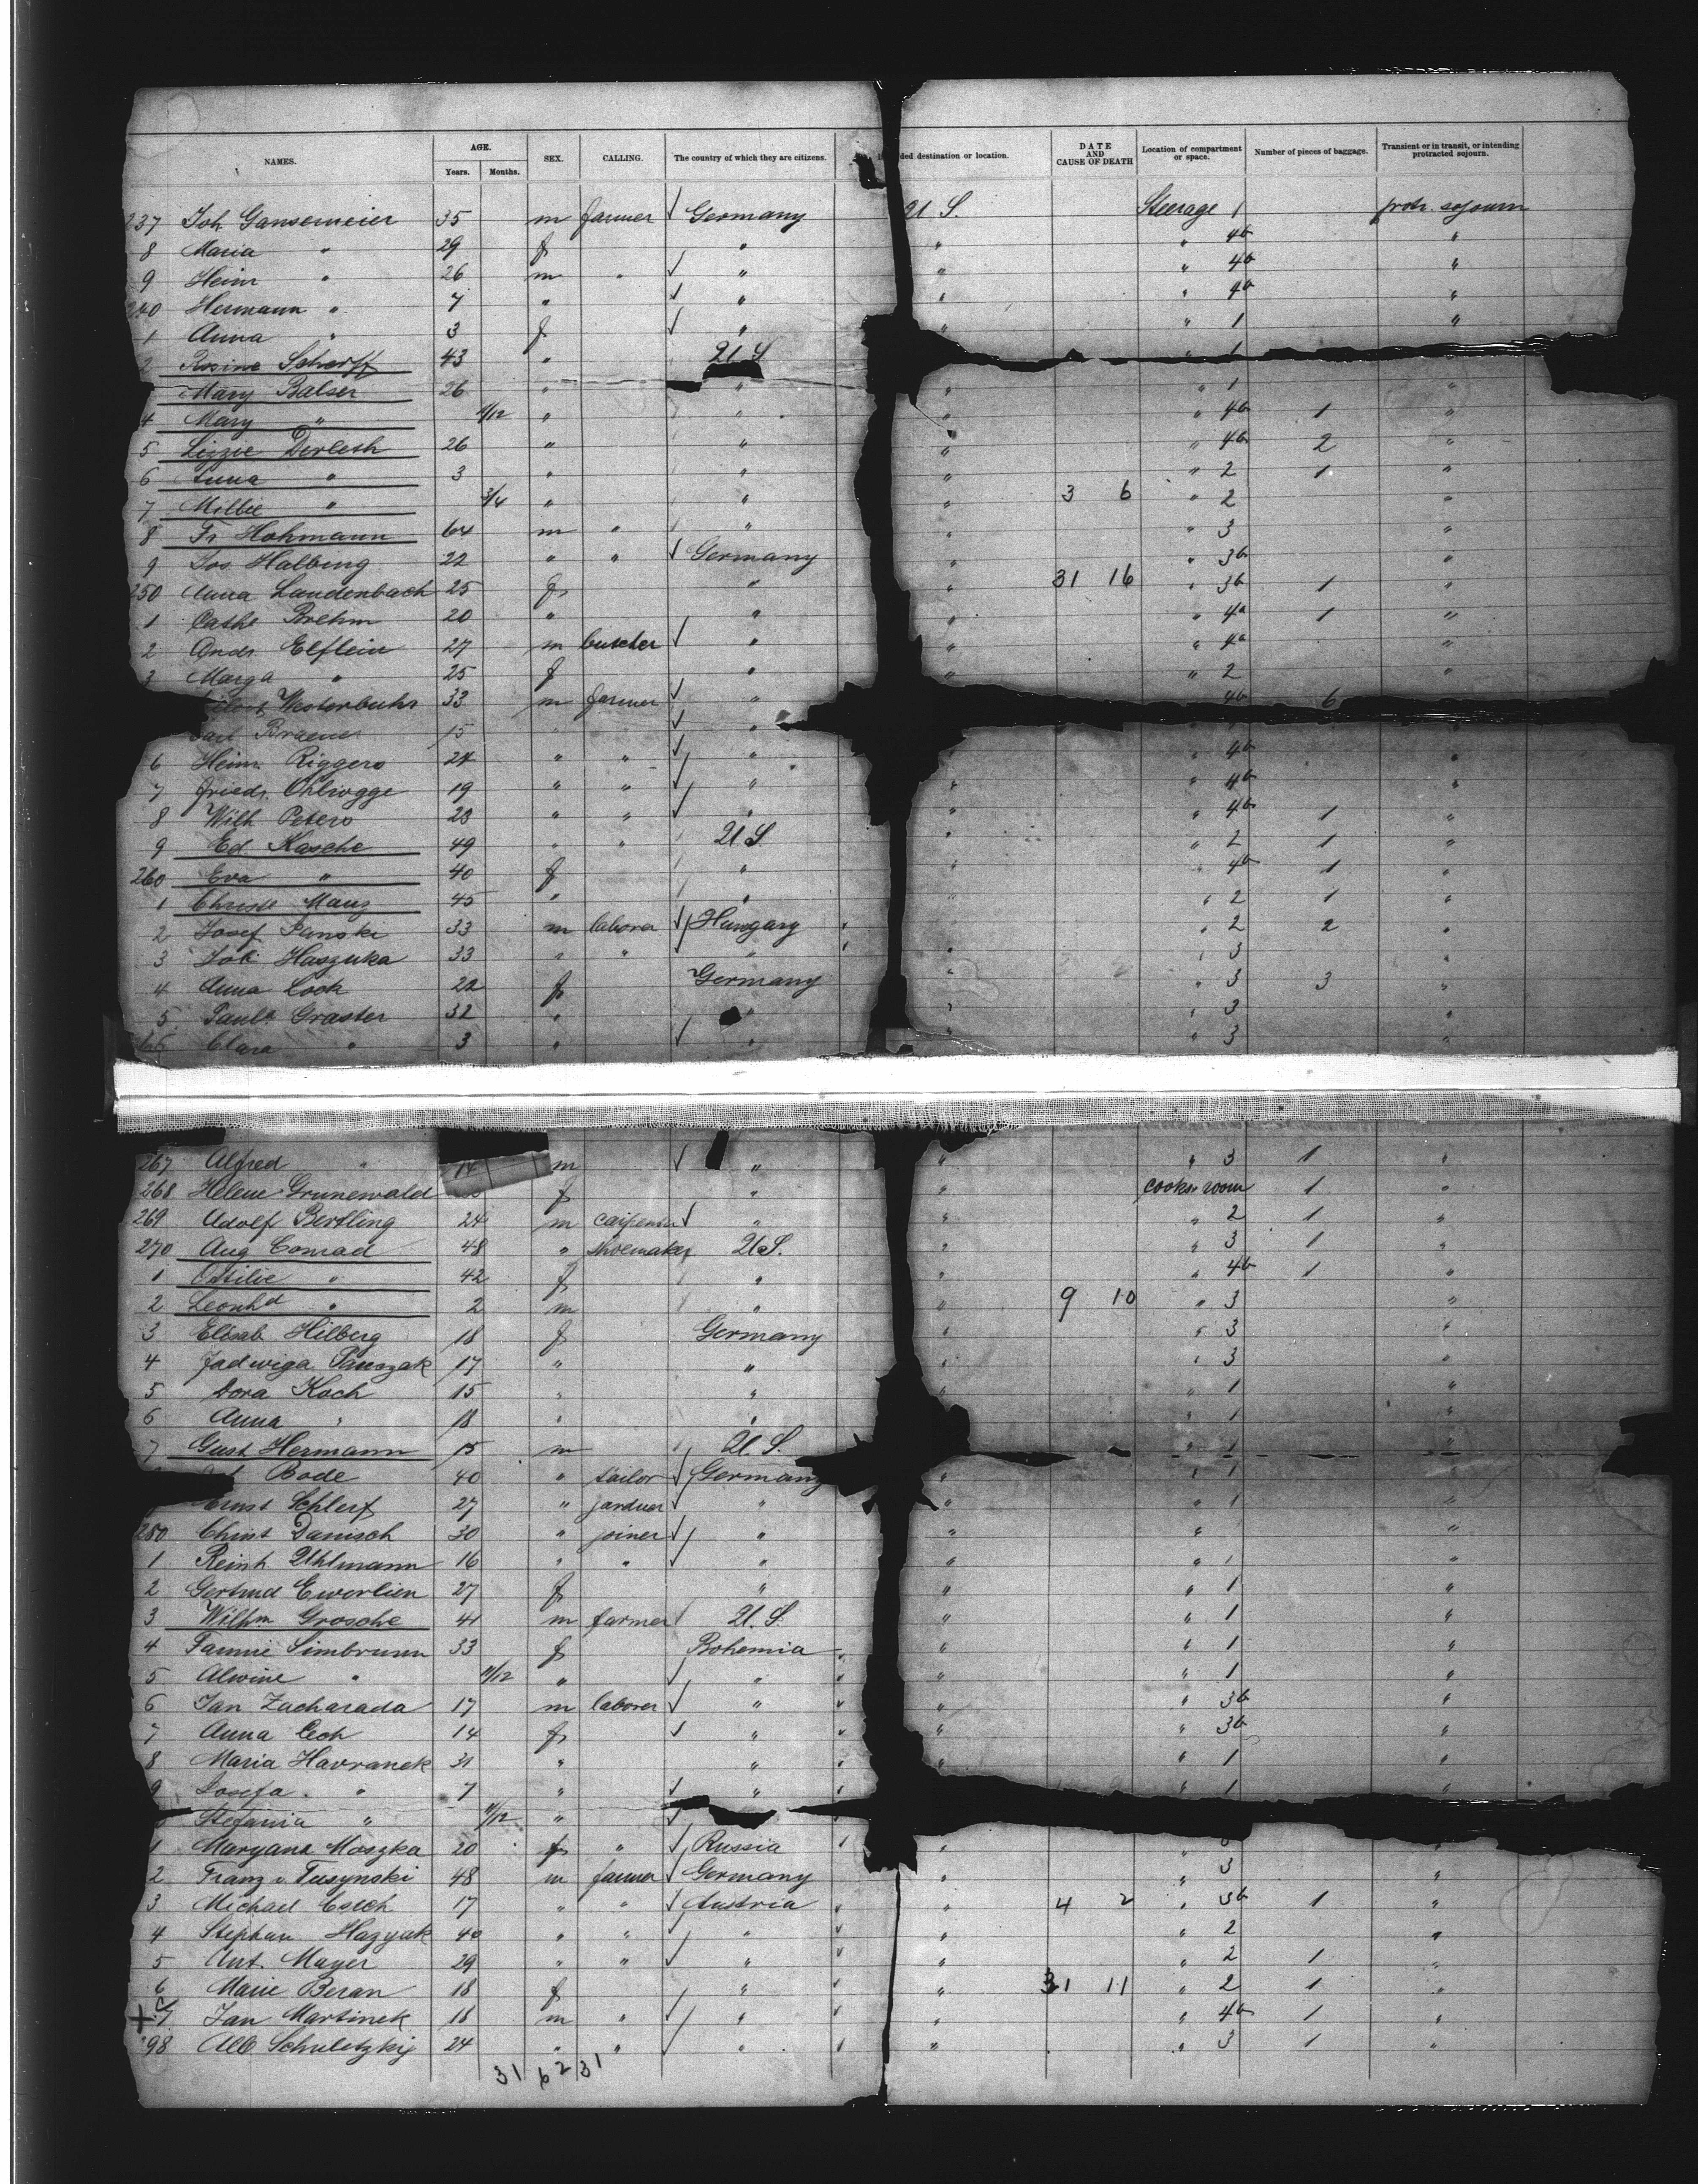 NAMES. AGE. Years. Months. SEX. CALLING. The country of which they are citizens. ded destination or location. DATE AND CAUSE OF DEATH Location of compartment or space. Number of pieces of baggage. Transient or in transit, or intending protracted sojourn.
237 Joh Gansemeier 35 m farmer √ Germany U S. Steerage 1 protr. sojourn
8 Maria " 29 f " " " 4b "
9 Heinr " 26 m " √ " " " 4b "
240 Hermann " 7 " √ " " " 4b "
1 Anna " 3 f √ " " " 1 "
2 Rosine Scherff 43 " U S " 1
Mary Balser 26 " " " " 1 "
4 Mary " 11/12 " " " " 4b 1 "
5 Lizzie Derleth 26 " " " " 4b 2 "
6 Anna " 3 " " " " 2 1 "
7 Millie " 3/4 " " " 3 6 " 2 "
8 Fr Hohmann 64 m " " " " 3 "
9 Jos. Halbing 22 " " √ Germany " " 3b "
250 Anna Landenbach 25 f " " 31 16 " 3b 1 "
1 Cathe Brehm 20 " " " " 4a 1 "
2 Andr. Elflein 27 m butcher √ " " " 4a "
3 Marga " 25 f " " " 2 "
Westerbuhr 33 m farmer √ " 4b 6
Braemer 15 " √ "
6 Heinr. Riggers 24 " " √ " " " 4b "
7 Friedr. Ohlrogge 19 " " √ " " " 4b "
8 Wilh Peters 23 " " √ " " " 4b 1 "
9 Ed. Kasche 49 " " U S " " 2 1 "
260 Eva " 40 f " " " 4b 1 "
1 Christe Manz 45 " " " " 2 1 "
2 Josef Panske 33 m laborer √ Hungary " 2 2 "
3 Joh Haszuka 33 " " " " " 3 "
4 Anna Loch 22 f Germany " " 3 3 "
5 Paula Graster 32 " " " " 3 "
66 Clara " 3 " √ " " " 3 "
267 Alfred " 14 m √ " " " 3 1 "
268 Helene Grunewald f " " cooks room 1 "
269 Adolf Bertling 24 m carpenter √ " " " 2 1 "
270 Aug Conrad 48 " shoemaker U S. " " 3 1 "
1 Ottilie " 42 f " " " 4b 1 "
2 Leonhd " 2 m " " 9 10 " 3 "
3 Elisab Hilberg 18 f Germany " " 3 "
4 Jadwiga Panszak 17 " " " " 3 "
5 Dora Koch 15 " " " " 1 "
6 Anna " 18 " " " " 1 "
7 Gust Hermann 15 m U. S. " 1 "
Bode 40 " tailor √ Germany " " 1 "
Ernst Schlerf 27 " jardner √ " " " 1 "
280 Christ Danisch 30 " joiner √ " " " "
1 Reinh Uhlmann 16 " " √ " " " 1 "
2 Gertrud Eworlien 27 f " " " 1 "
3 Wilhm Grosche 41 m farmer U. S. " " 1 "
4 Fannie Simbrunn 33 f Bohemia " " 1 "
5 Alwine " 11/12 " √ " " " 1 "
6 Jan Zacharada 17 m laborer √ " " " 3b "
7 Anna Cech 14 f √ " " " 3b "
8 Maria Havranek 31 " " " " 1 "
9 Josefa " 7 " √ " " 1 "
Stefania " 11/12 " √
1 Maryana Moszka 20 f " √ Russia
2 Franz v. Tusynski 48 m farmer √ Germany " " 3 "
3 Michael 17 " " √ Austria " 4 2 " 3b 1 "
4 Stephan Hazyak 40 " " √ " " " 2 "
5 Ant. Mayer 29 " " √ " " " 2 1 "
6 Marie Beran 18 f " " 31 11 " 2 1 "
7 Jan Martinek 18 m " √ " " " 4b 1 "
98 Alb Schuletzkij 24 " " √ " " " 3 1 "
31 62 31